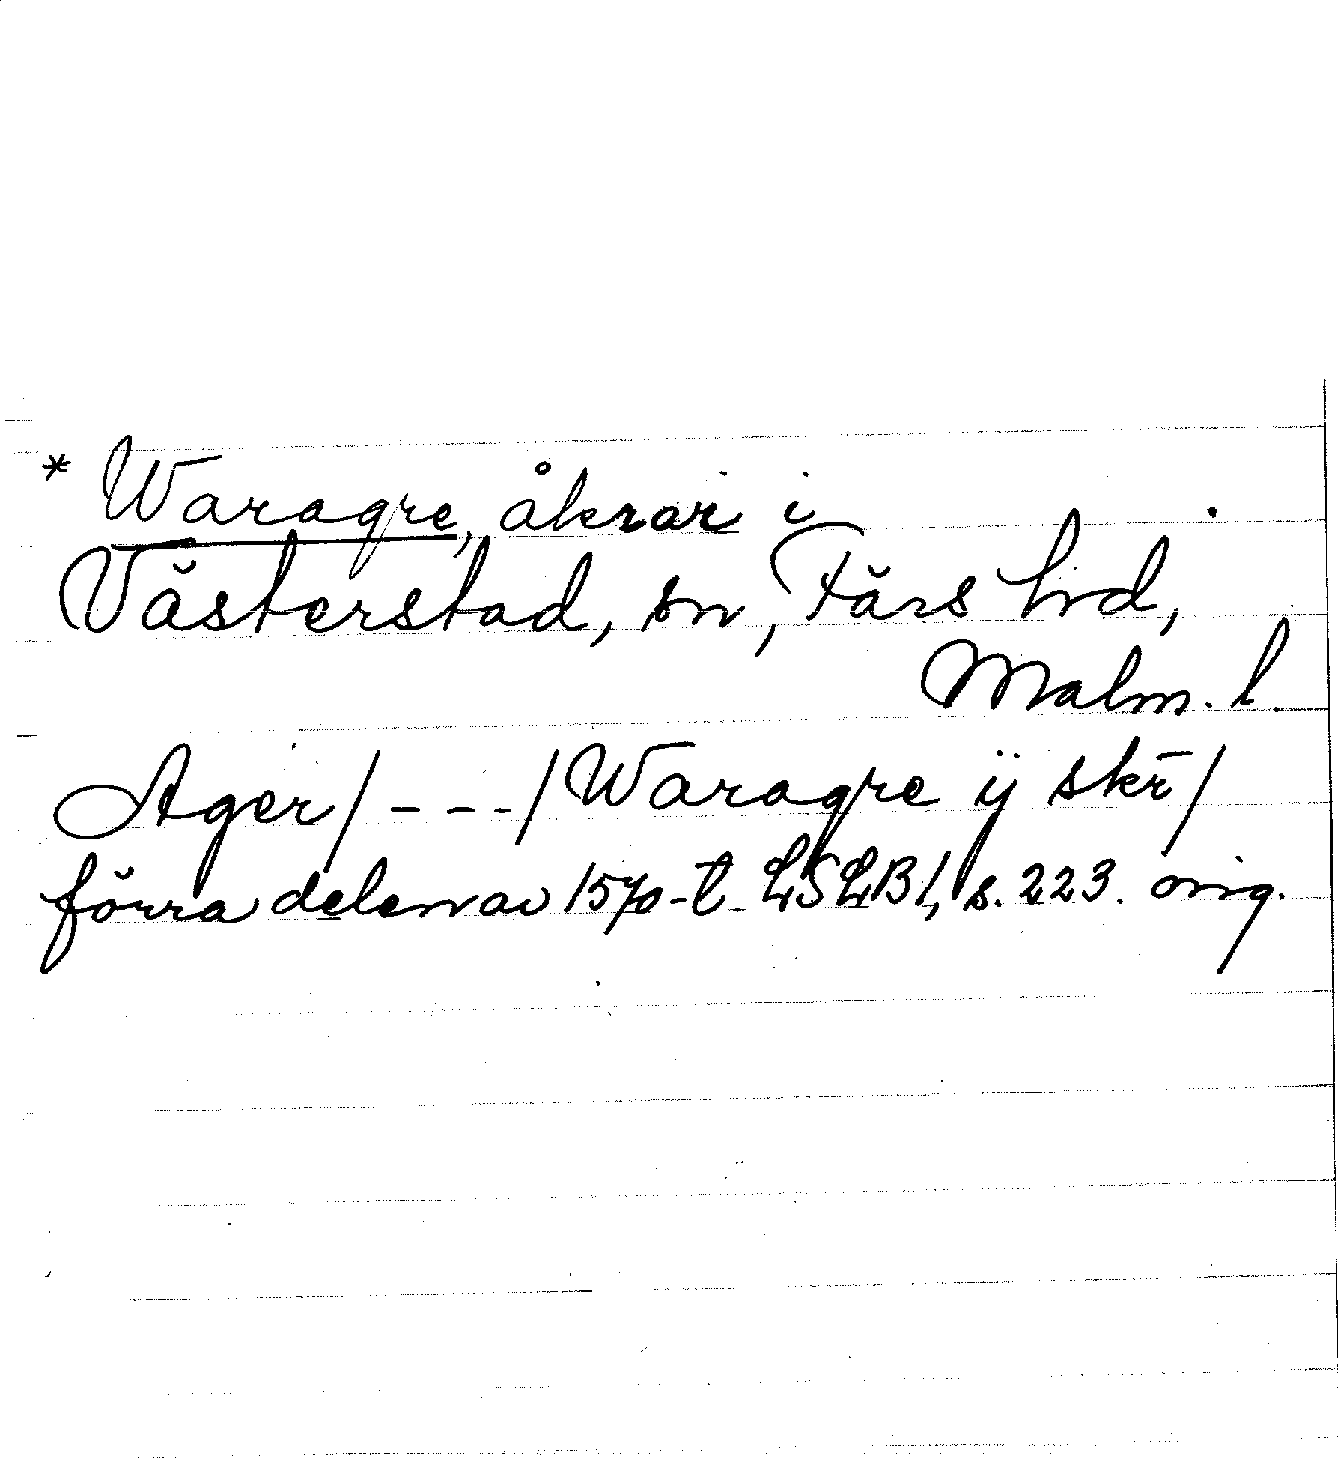 * Waragre, åkrar i
Västerstad, sn, Färs hrd,
Malm. l.
Ager / - - - / Waragre ij skr̄ /
förra delen av 1570-t. LSLB I, s. 223. orig.